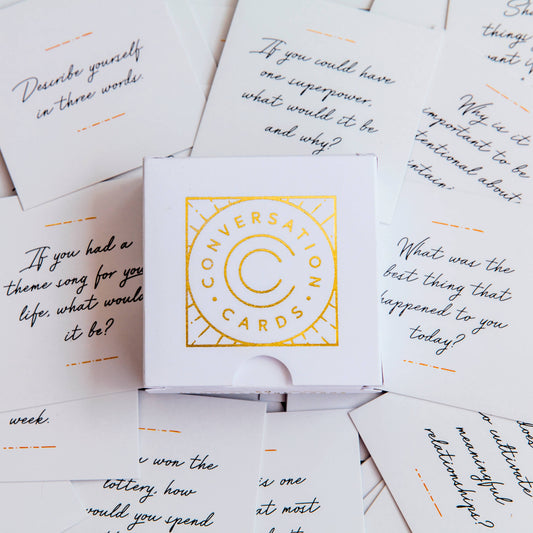 Describe yourself
in three words.
If you could have
one superpower,
what would it be
and why?
things
Why is it
important to be
about
If you had a
theme song for your
life, what would
it be?
CONVERSATION
CARDS
What was the
best thing that
happened to you
today?
week.
won the
lottery, how
would you spend
is one
most
cultivate
meaningful
relationships?